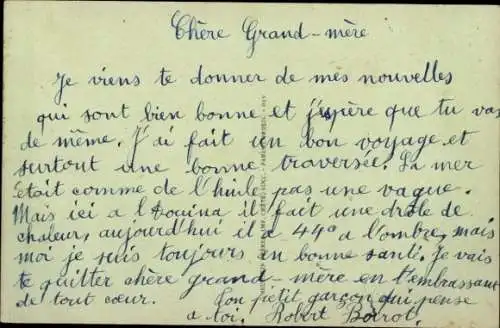 Chère Grand-mère
Je viens te donner de mes nouvelles
qui sont bien bonne et j'espère que tu vas
de même. J'ai fait un bon voyage et
surtout une bonne traversée. La mer
était comme de l'huile pas une vague.
Mais ici a l'Aouina il fait une drôle de
chaleur, aujourd'hui il a 44° a l'ombre, mais
moi je suis toujours en bonne santé. Je vais
te quitter chère grand-mère en t'embrassant
de tout cœur. Ton petit garçon qui pense
a toi. Robert